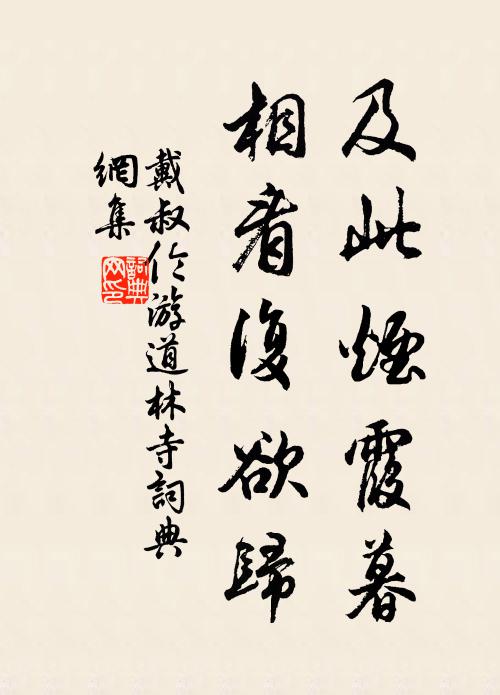 及此煙霞暮
相看復欲歸
戴叔伦游道林寺詞典
網集
詞典网印